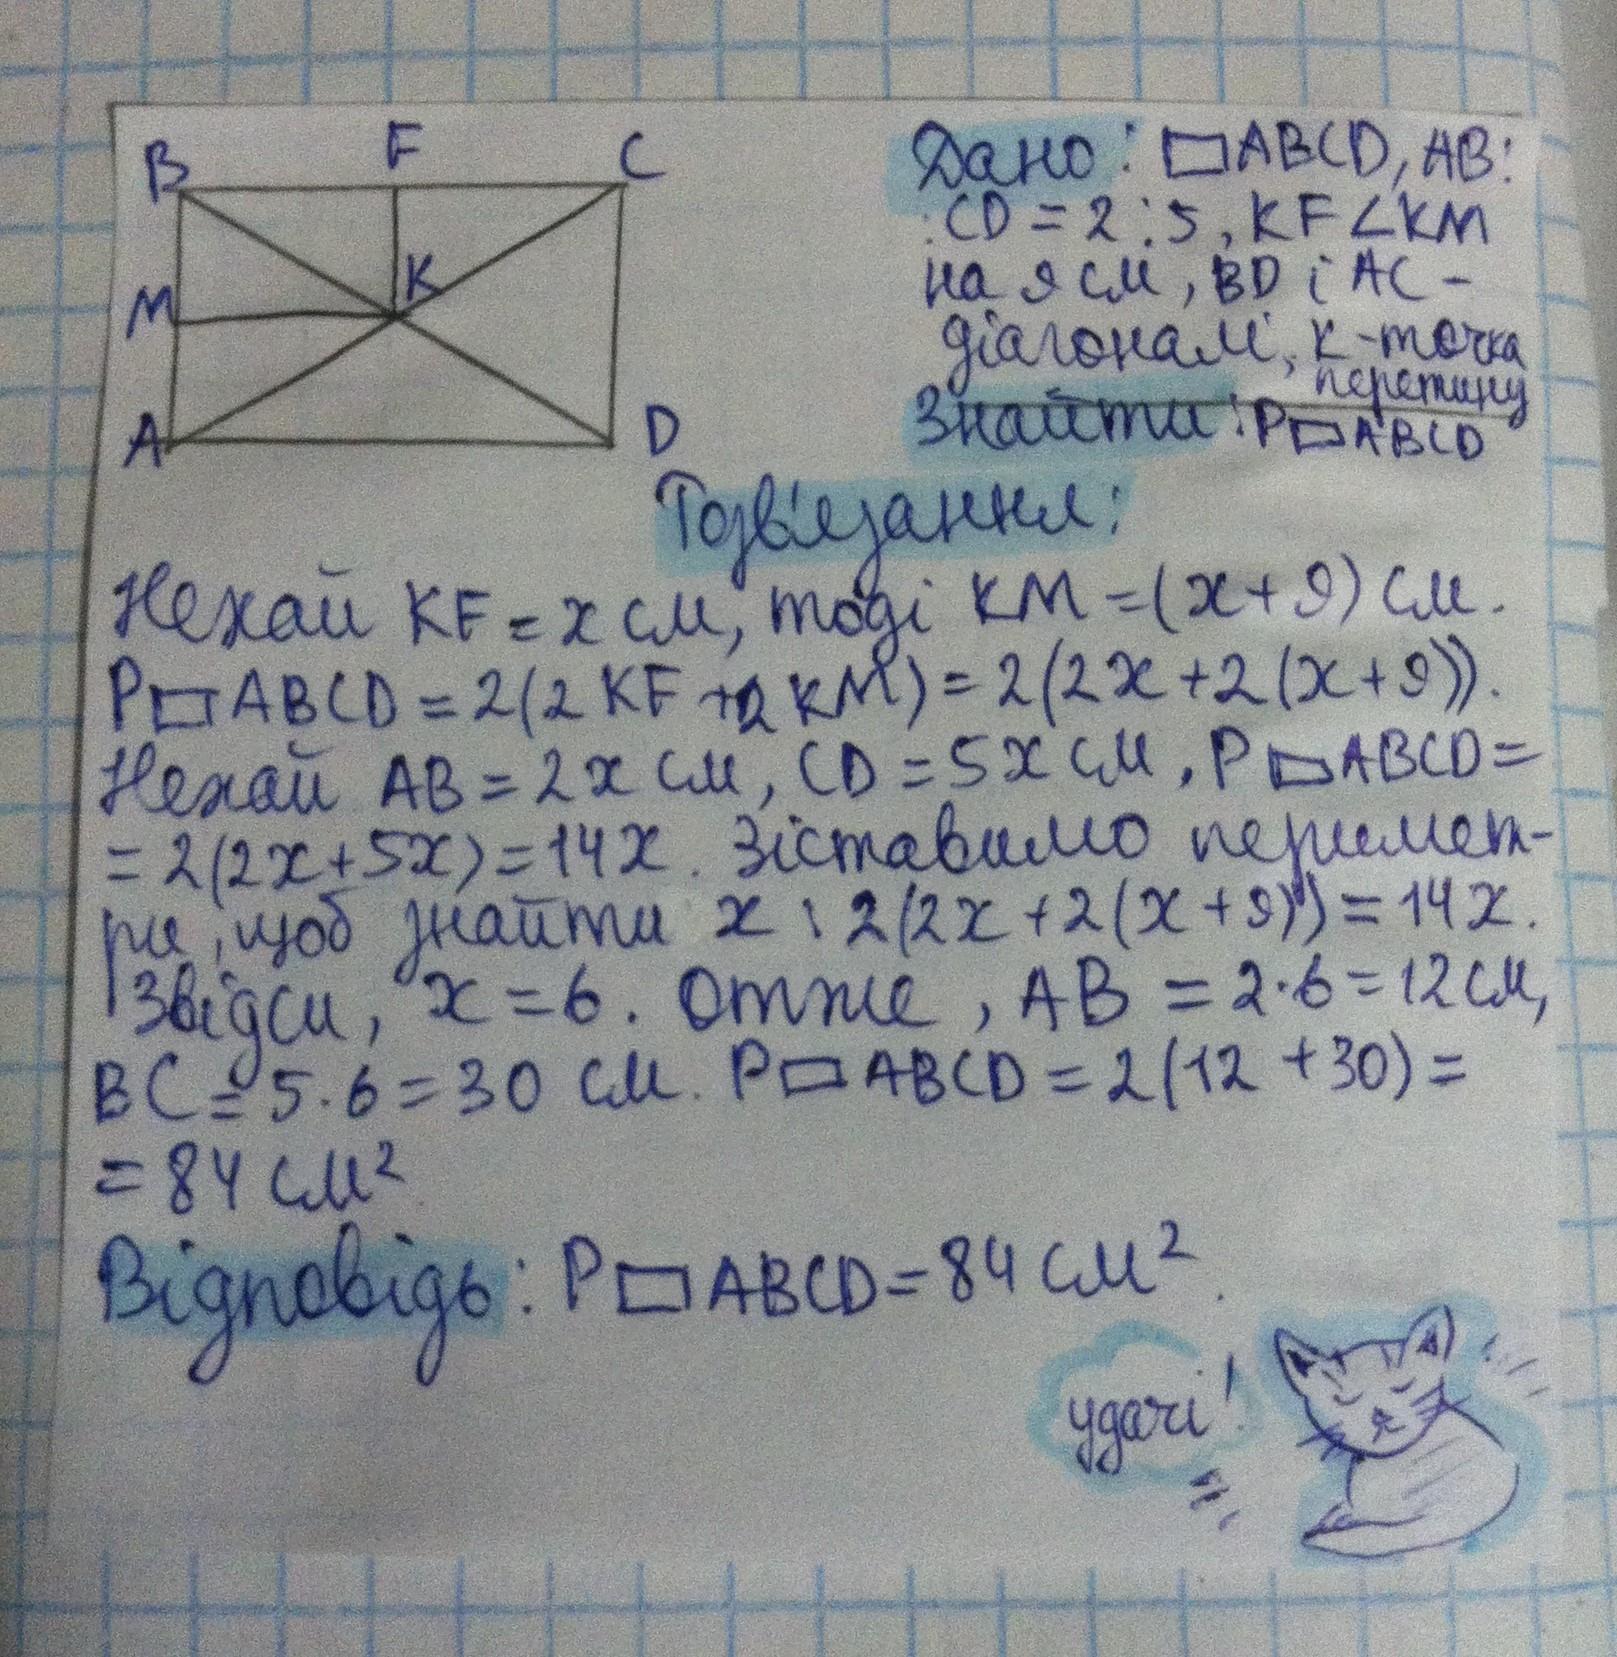 B F C
M K
A D
Дано: ▭ABCD, AB:
:CD = 2:5, KF < KM
на 9 см, BD і AC -
діагоналі, K-точка
перетину
Знайти: P▭ABCD
Розв'язання:
Нехай KF = x см, тоді KM = (x+9) см.
P▭ABCD = 2(2KF + 2KM) = 2(2x+2(x+9)).
Нехай AB = 2x см, CD = 5x см, P▭ABCD =
= 2(2x+5x) = 14x. Зіставимо перимет-
ри, щоб знайти x: 2(2x+2(x+9)) = 14x.
Звідси, x = 6. Отже, AB = 2·6 = 12 см,
BC = 5·6 = 30 см. P▭ABCD = 2(12+30) =
= 84 см²
Відповідь: P▭ABCD = 84 см².
удачі!